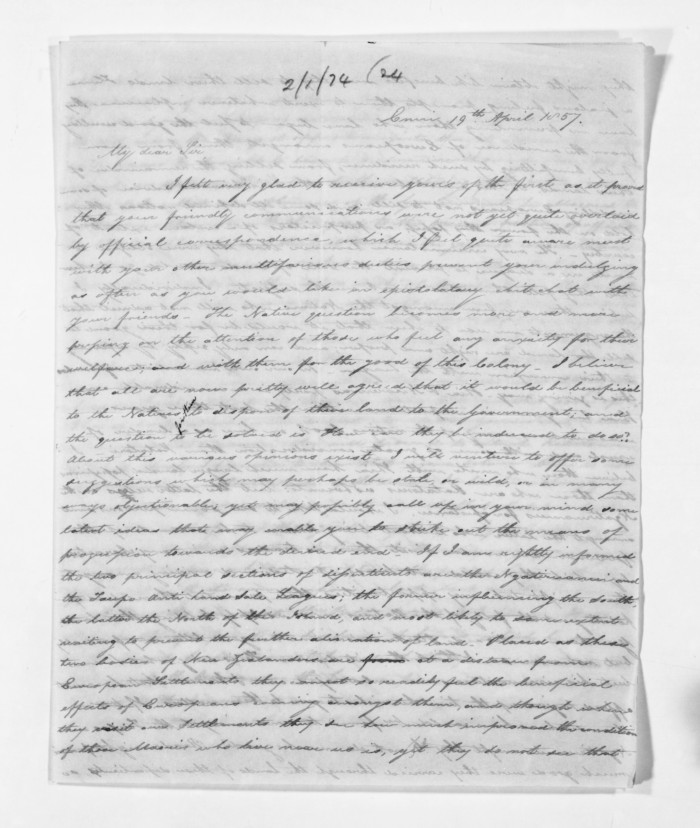 2/1/74 (24
19th April 1857.
My dear Sir
I felt very glad to receive yours of the first, as it proves
that your friendly communications were not yet quite overlaid
by official correspondence, which I feel quite aware must
with your other multifarious duties prevent your indulging
as often as you would like in epistolatory chit chat with
your friends. The Native question becomes more and more
pressing on the attention of those who feel any anxiety for their
welfare, and with them, for the good of this Colony. I believe
that all are now pretty well agreed that it would be beneficial
to the Natives to dispose of their land to the Government, and
the question to be solved is How can they be induced to do so?
About this various opinions exist. I will venture to offer some
suggestions which may perhaps be stale, or wild, or in many
ways objectionable, yet may possibly call up in your mind some
latent ideas that may enable you to strike out the means of
progression towards the desired end. If I am rightly informed
the two principal sections of dissentients are the Ngatiruanui and
the Taupo Anti land Sale Leagues; the former influencing the South,
the latter the North of this Island, and most likely to
waiting to prevent the further alienation of land. Placed as these
two bodies of New Zealanders are at a distance from
European Settlements they cannot so readily feel the beneficial
effects of Europeans coming amongst them, and though when
they visit our Settlements they see how much improved the condition
of those Maories who live near us is, yet they do not see that